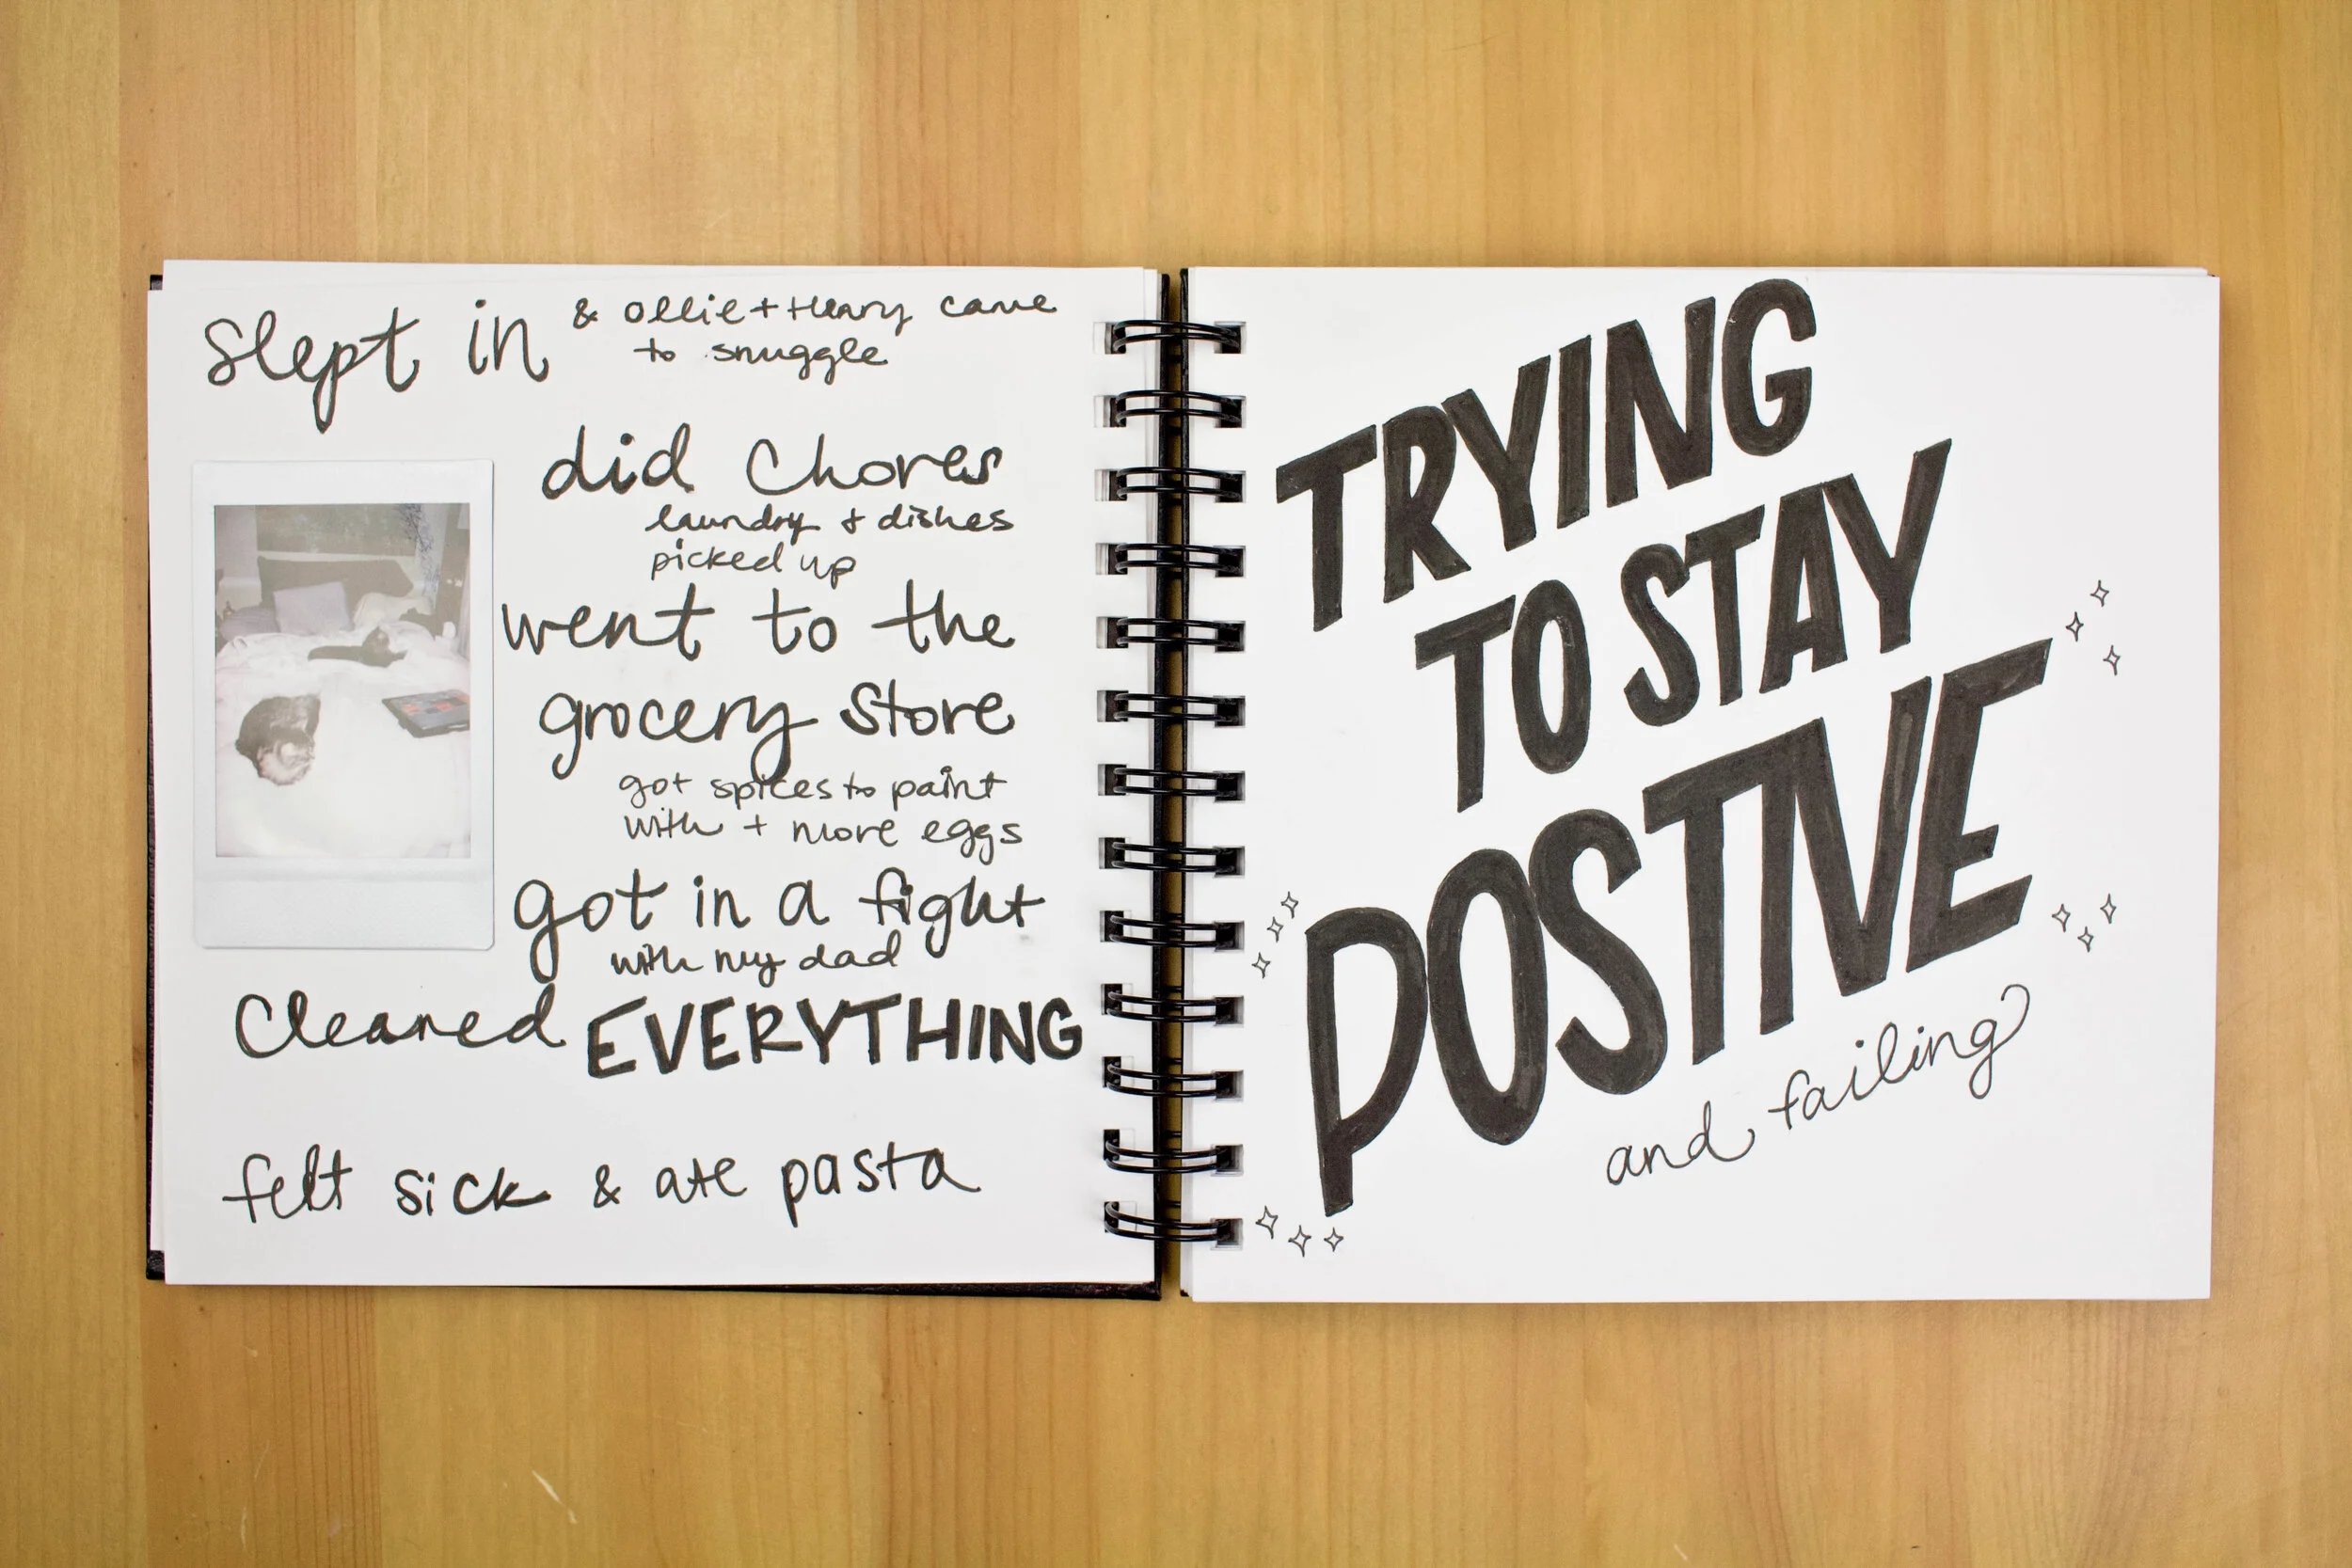 slept in & Ollie + Henry came
to snuggle
did chores
laundry + dishes
picked up
went to the
grocery store
got spices to paint
with + more eggs
got in a fight
with my dad
Cleaned EVERYTHING
felt sick & ate pasta
TRYING
TO STAY
POSTIVE
and failing